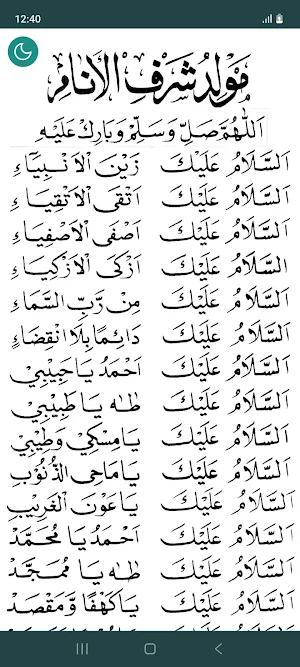 12:40
مَوْلِدُ شَرَفِ الْأَنَامِ
اَللّٰهُمَّ صَلِّ وَسَلِّمْ وَبَارِكْ عَلَيْهِ
اَلسَّلَامُ عَلَيْكَ زَيْنَ الْاَنْبِيَاءِ
اَلسَّلَامُ عَلَيْكَ اَتْقَى الْاَتْقِيَاءِ
اَلسَّلَامُ عَلَيْكَ اَصْفَى الْاَصْفِيَاءِ
اَلسَّلَامُ عَلَيْكَ اَزْكَى الْاَزْكِيَاءِ
اَلسَّلَامُ عَلَيْكَ مِنْ رَّبِّ السَّمَاءِ
اَلسَّلَامُ عَلَيْكَ دَائِمًا بِلَا انْقِضَاءِ
اَلسَّلَامُ عَلَيْكَ اَحْمَدُ يَا حَبِيْبِيْ
اَلسَّلَامُ عَلَيْكَ طٰهٰ يَا طَبِيْبِيْ
اَلسَّلَامُ عَلَيْكَ يَا مِسْكِيْ وَطِيْبِيْ
اَلسَّلَامُ عَلَيْكَ يَا مَاحِى الذُّنُوْبِ
اَلسَّلَامُ عَلَيْكَ يَا عَوْنَ الْغَرِيْبِ
اَلسَّلَامُ عَلَيْكَ اَحْمَدُ يَا مُحَمَّدْ
اَلسَّلَامُ عَلَيْكَ طٰهٰ يَا مُمَجَّدْ
اَلسَّلَامُ عَلَيْكَ يَا كَهْفًا وَّمَقْصَدْ